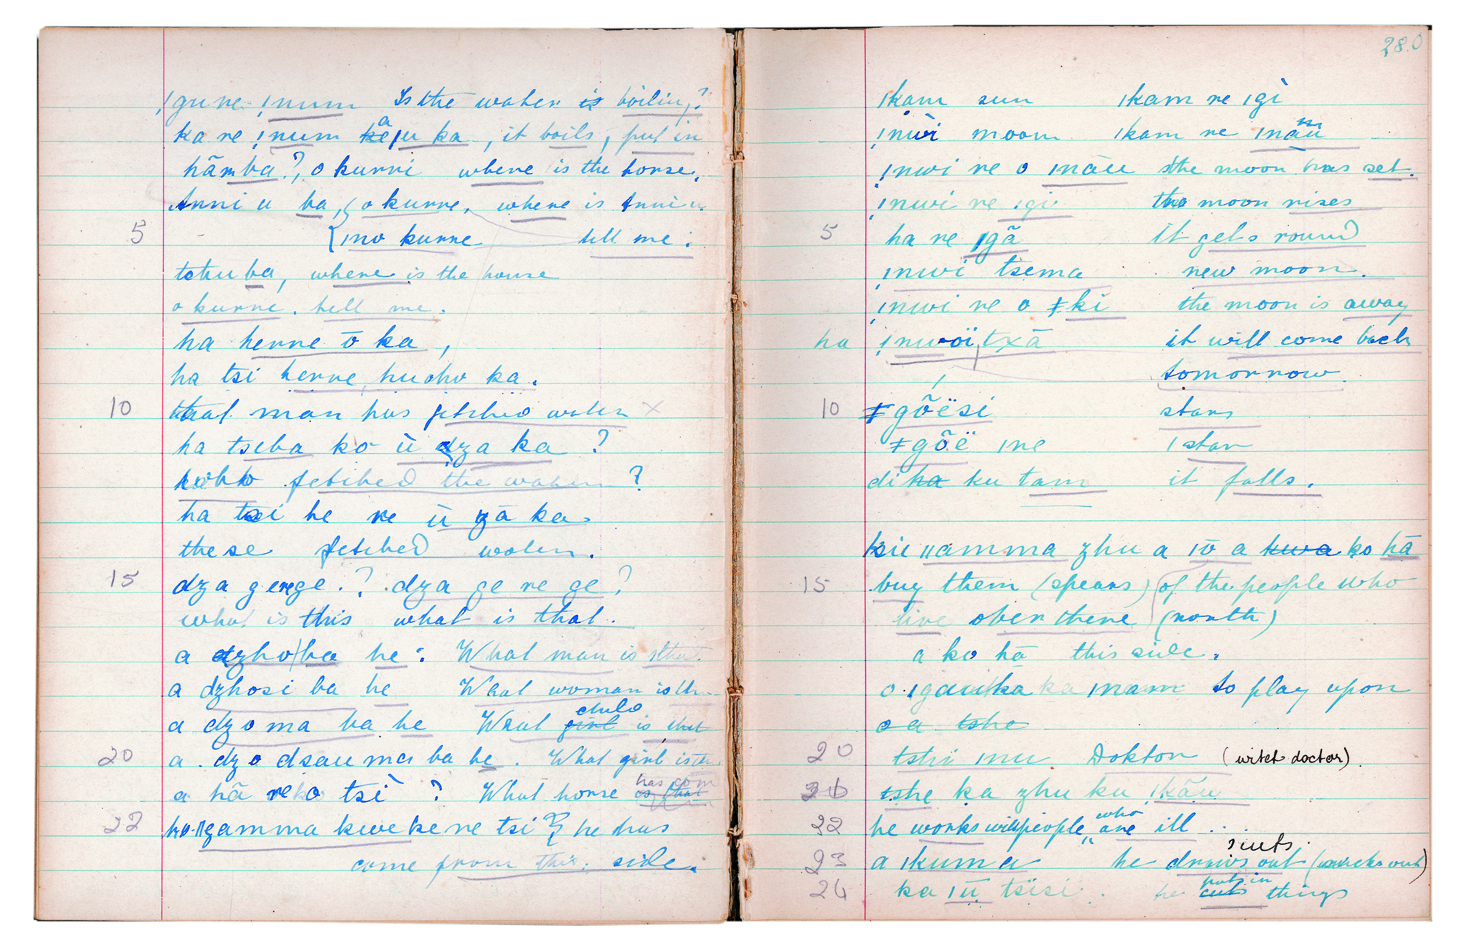 ǀgu re ǃnum Is the water is boiling?
ka re ǃnum kāǀu ka, it boils, put in
hāmba?, o kurri where is the horse.
Anni u ba, o kurre, where is Anni u.
5 ǀno kurre tell me:
tohu ba, where is the house
o kurre. tell me.
ha henne ō ka,
ha tsi henne huoho ka.
10 that man has fetched water ×
ha tseba ko ū dza ka?
who fetched the water?
ha tsi he re ū gā ka.
these fetched water.
15 dza gerege.? dza ge re ge?
what is this what is that.
a dzho/ba he: What man is that.
a dzhosi ba he What woman is
child
a dzoma ba he What girl is that
20 a. dzo dsau ma ba he. What girl is
has com
a hā re o tsi? What horse
22 ha ǁgamma kwe ke ne tsi he has
come from this side.
280
ǀkam sun ǀkam re ǀgi
ǃnwi moon ǀkam re ǀnāu
ǃnwi re o ǀnāu the moon has set.
ǃnwi re ǀgi the moon rises
5 ha re ǀgā it gets round
ǃnwi tsema new moon.
ǃnwi re o ǂki the moon is away
ha ǃnwoï txā it will come back
tomorrow.
10 ǂgōësi stars
ǂgōë ǀne 1 star
di ha ku tam it falls.
ǁamma zhu a ǀō a kwa ko hā
15 buy them (spears) of the people who
live over there (north)
a ko hā this side.
ka ǀnam to play upon
o a tshe
20 tshi ǀnu Doktor (witch doctor).
21 tshe ka zhu ku ǀkāu
who
22 he works will people, are ill ...
cuts.
23 a ǀkuma he draws out (sucks out)
puts in
24 ka ǀū tsïsi. he cuts things